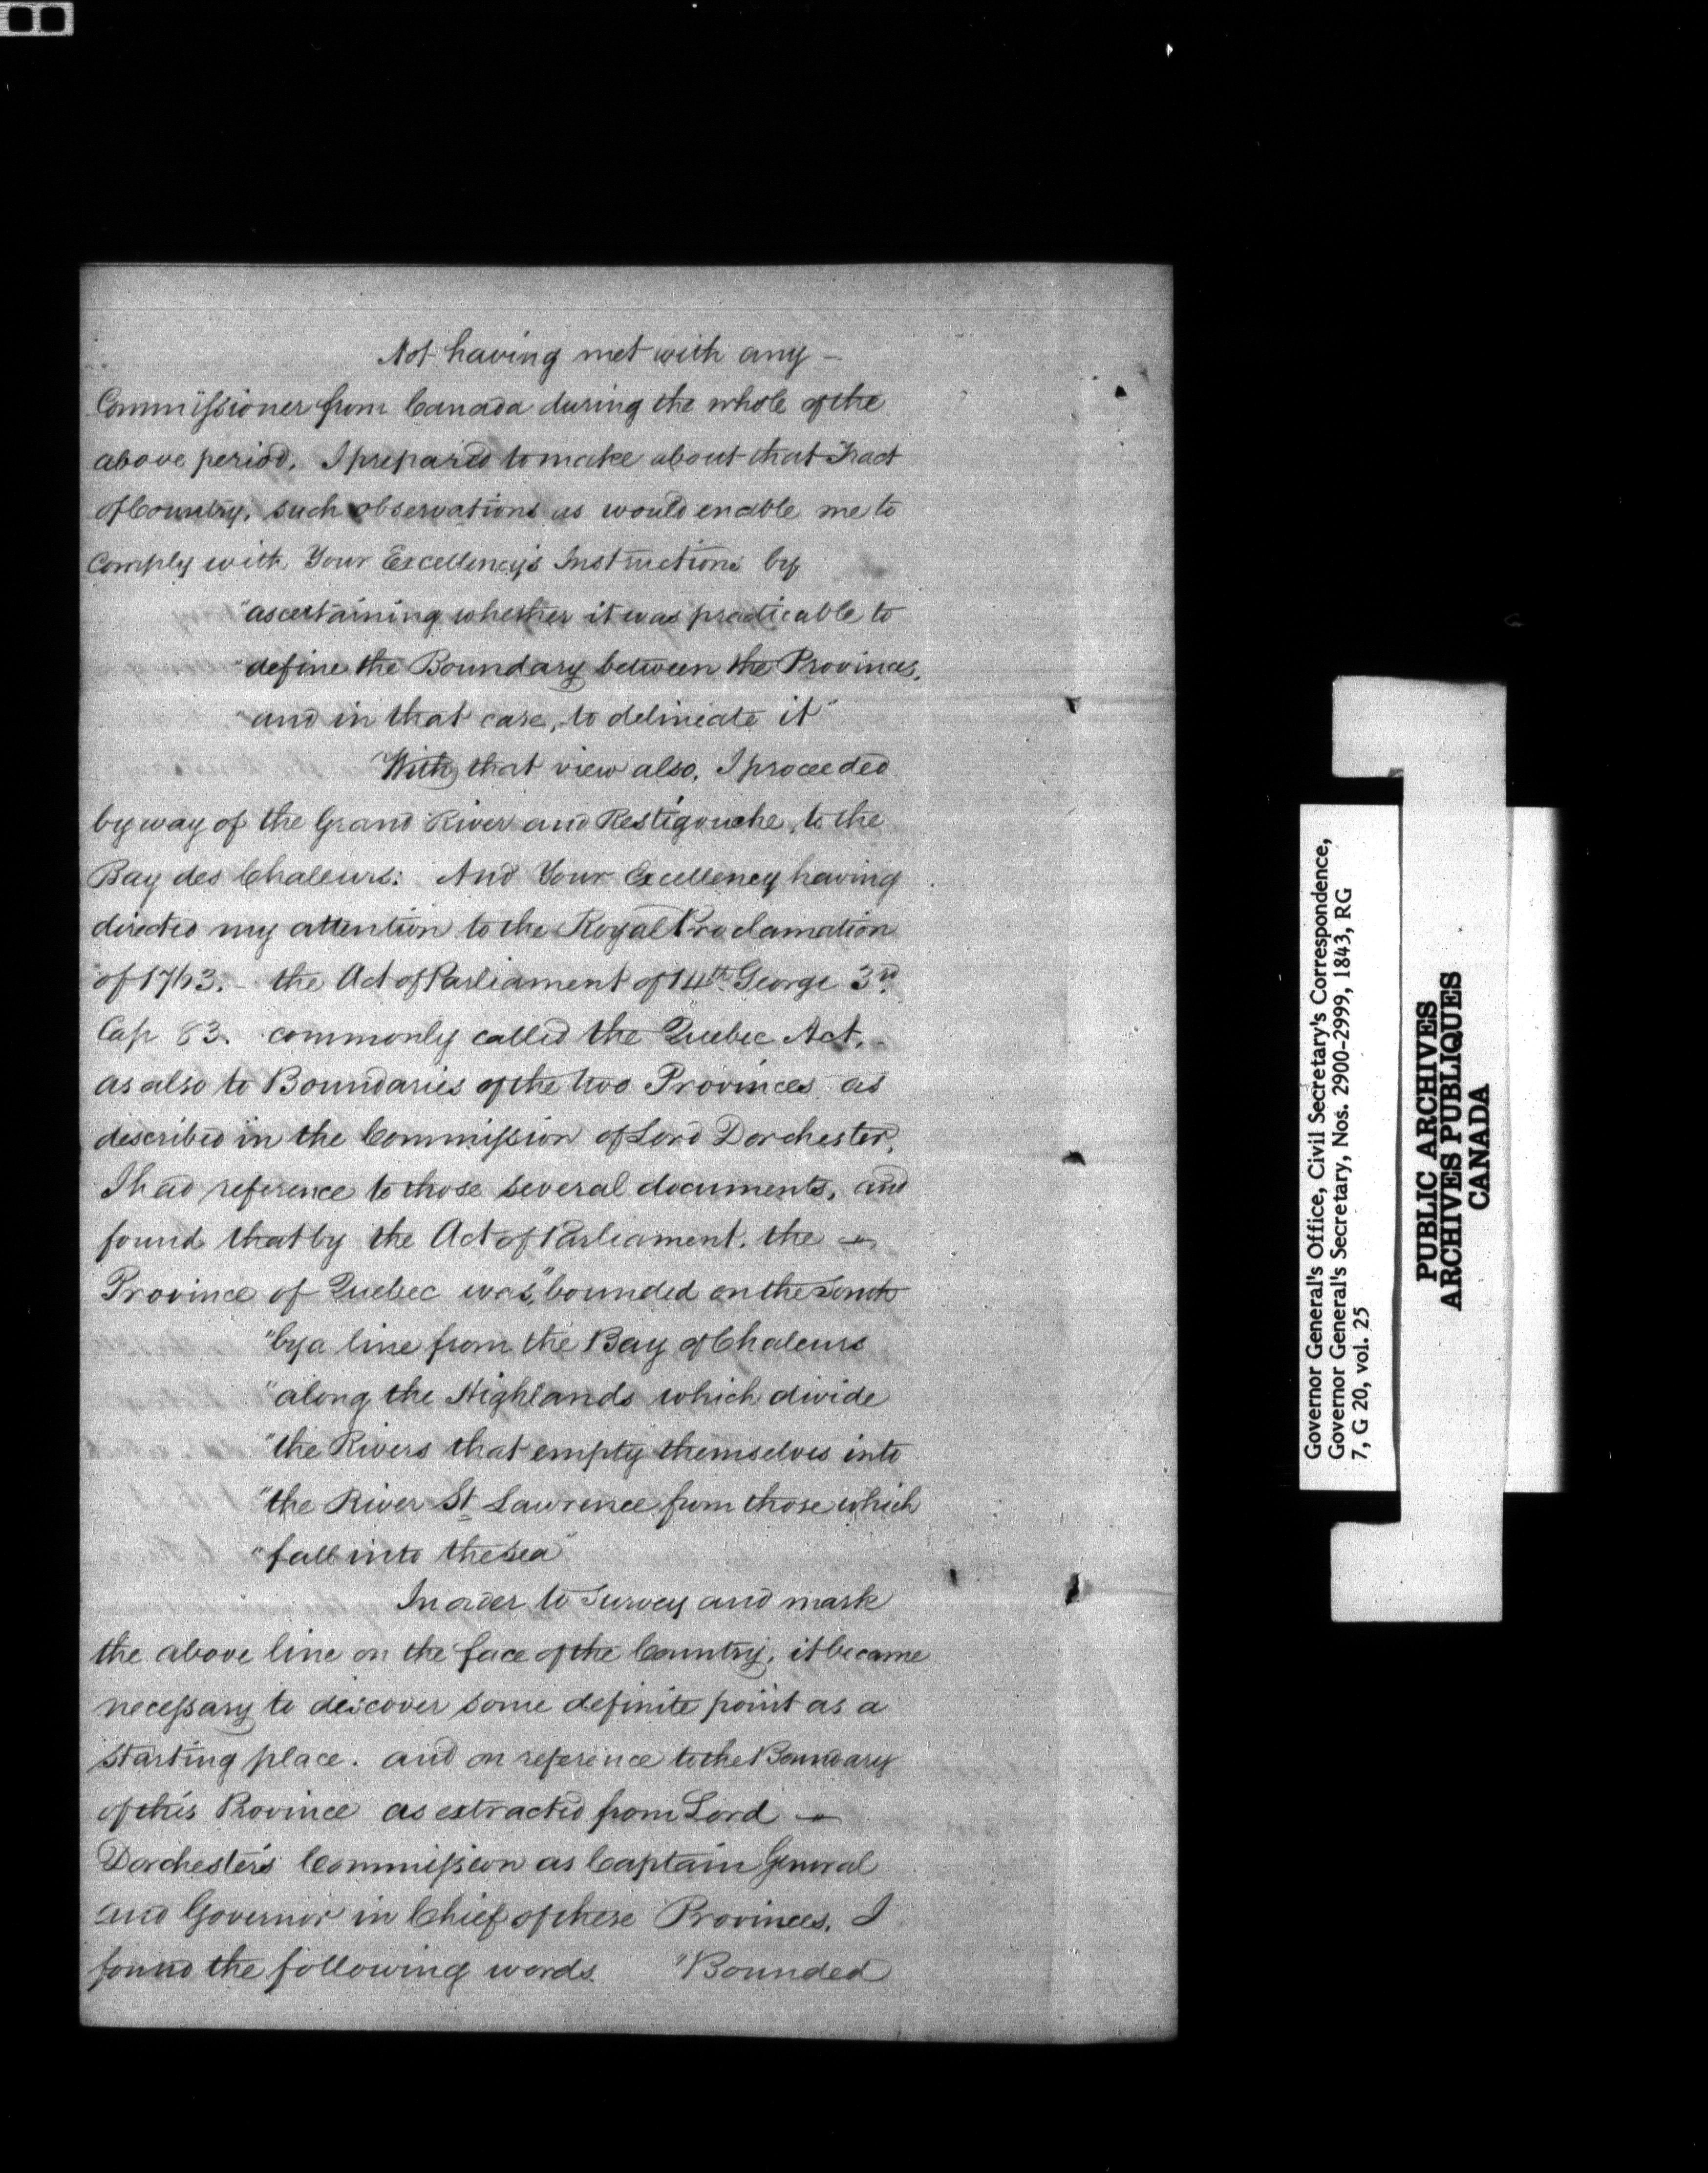 Not having met with any —
Commissioner from Canada during the whole of the
above period, I prepared to make about that Tract
of Country, such observations as would enable me to
comply with Your Excellency's Instructions by
"ascertaining whether it was practicable to
"define the Boundary between the Provinces,
"and in that case, to delineate it"
With that view also, I proceeded
by way of the Grand River and Restigouche, to the
Bay des Chaleurs: And Your Excellency having
directed my attention to the Royal Proclamation
of 1763. – the Act of Parliament of 14th George 3rd
Cap 83. commonly called the Quebec Act,
as also to Boundaries of the two Provinces as
described in the Commission of Lord Dorchester,
I had reference to those several documents, and
found that by the Act of Parliament, the —
Province of Quebec was, "bounded on the South
"by a line from the Bay of Chaleurs
"along the Highlands which divide
"the Rivers that empty themselves into
"the River St Lawrence from those which
"fall into the sea"
In order to survey and mark
the above line on the face of the Country, it became
necessary to discover some definite point as a
starting place. and on reference to the Boundary
of this Province as extracted from Lord —
Dorchester's Commission as Captain General
and Governor in Chief of these Provinces, I
found the following words. "Bounded
Governor General's Office, Civil Secretary's Correspondence,
Governor General's Secretary, Nos. 2900-2999, 1843, RG
7, G 20, vol. 25
PUBLIC ARCHIVES
ARCHIVES PUBLIQUES
CANADA